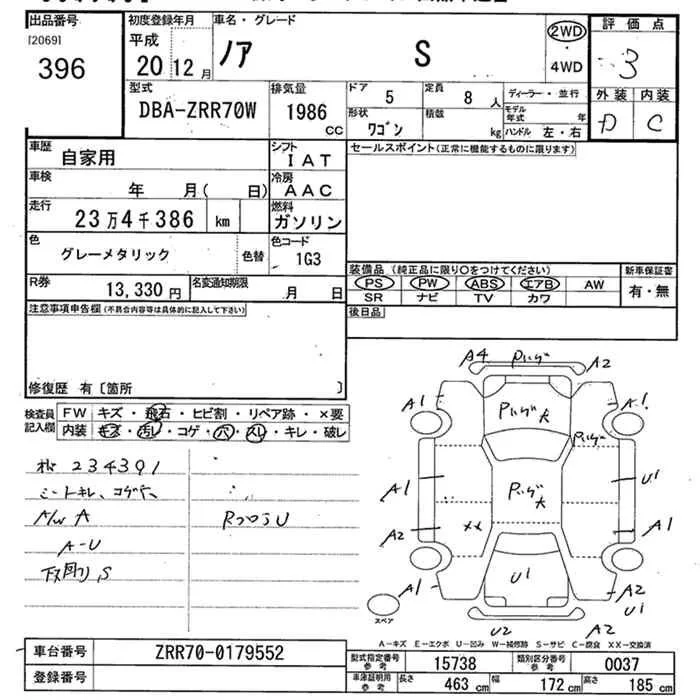 出品番号
[2069]
396
初度登録年月
平成
20 12 月
車名・グレード
ノア S
2WD
・
4WD
評価点
3
外装 内装
D C
型式
DBA-ZRR70W
排気量
1986
cc
ドア 5
定員 8 人
形状 ワゴン
積数 kg
ディーラー・並行
モデル年式 年
ハンドル 左・右
車歴
自家用
シフト
IAT
車検
年 月( 日)
冷房
AAC
走行
23万4千386 km
燃料
ガソリン
色
グレーメタリック
色替
色コード
1G3
R券
13,330 円
名変通知期限
月 日
セールスポイント(正常に機能するものに限ります)
装備品 (純正品に限り○をつけてください)
PS PW ABS エアB AW
SR ナビ TV カワ
新車保証書
有・無
後日品
注意事項申告欄 (不具合内容等は具体的に記入して下さい)
修復歴 有〔箇所 〕
検査員
記入欄
FW キズ・飛石・ヒビ割・リペア跡・×要
内装 キズ・汚レ・コゲ・穴・スレ・キレ・破レ
234391
シートキレ、コゲ穴
A/W A
A-U
下廻り、S
A4 Pハゲ A2
A1 Pハゲ大 A1
Pハゲ
A1 Pハゲ大 U1
A2 XX A1
A1 U1 A2
U1
U2 A2
スペア
A-キズ E-エクボ U-凹み W-補修跡 S-サビ C-腐食 XX-交換済
車台番号
ZRR70-0179552
登録番号
型式指定番号
参考
15738
類別区分番号
参考
0037
車庫証明用
参考
長さ 463 cm
幅 172 cm
高さ 185 cm